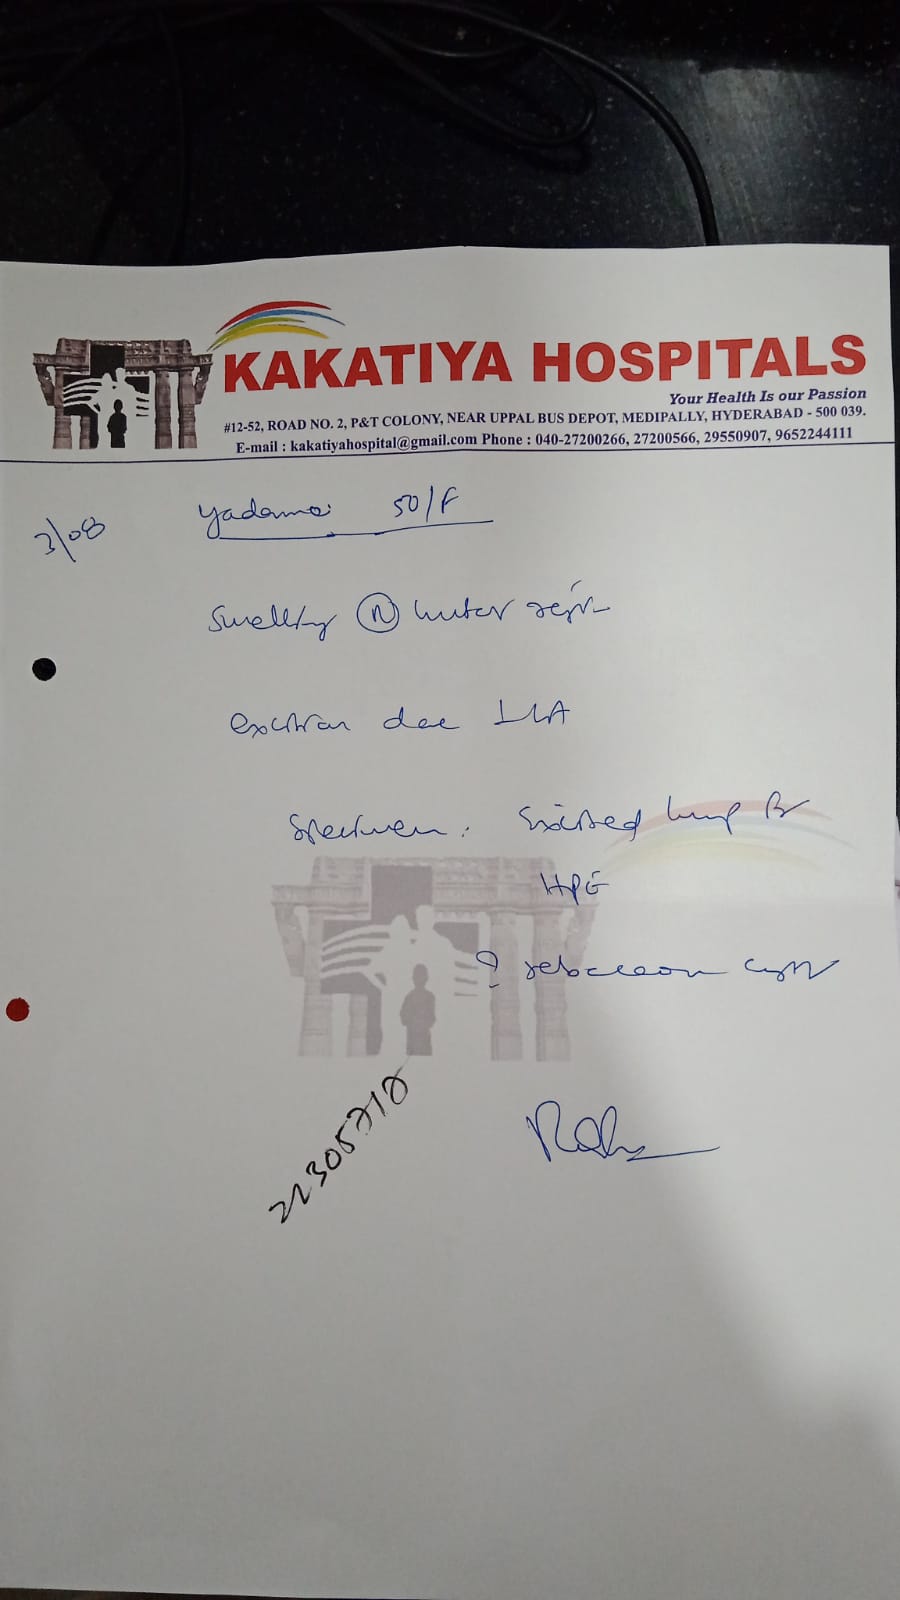 KAKATIYA HOSPITALS
Your Health Is our Passion
#12-52, ROAD NO. 2, P&T COLONY, NEAR UPPAL BUS DEPOT, MEDIPALLY, HYDERABAD - 500 039.
E-mail : kakatiyahospital@gmail.com Phone : 040-27200266, 27200566, 29550907, 9652244111
3/08 Yadamma 50/F
Swelling
excision
Specimen : Excised lump
HPE
? sebaceous cyst
22305710